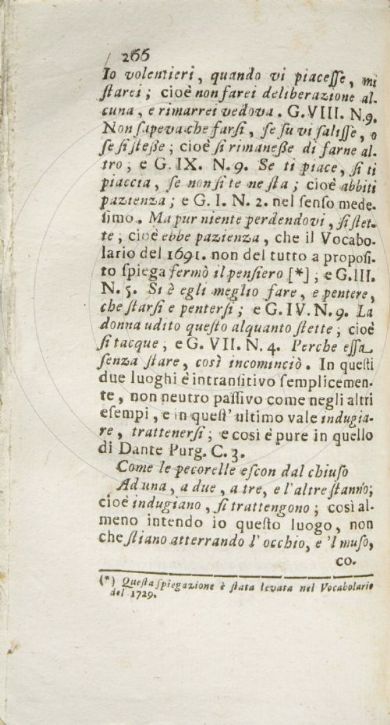 266
Io volentieri, quando vi piacesse, mi
starei; cioè non farei deliberazione al-
cuna, e rimarrei vedova. G.VIII. N.9.
Non sapeva che farsi, se su vi salisse, o
se si steße; cioè si rimaneße di farne al-
tro; e G. IX. N. 9. Se ti piace, si ti
piaccia, se non si te ne sta; cioè abbiti
pazienza; e G. I. N. 2. nel senso mede-
simo. Ma pur niente perdendovi, si stet-
te; cioè ebbe pazienza, che il Vocabo-
lario del 1691. non del tutto a proposi-
to spiega fermò il pensiero [*]; e G.III.
N. 5. Si è egli meglio fare, e pentere,
che starsi e pentersi; e G. IV. N. 9. La
donna udito questo alquanto stette; cioè
si tacque; e G. VII. N. 4. Perche essa
senza stare, così incominciò. In questi
due luoghi è intransitivo semplicemen-
te, non neutro passivo come negli altri
esempi, e in quest' ultimo vale indugia-
re, trattenersi; e così è pure in quello
di Dante Purg. C. 3.
Come le pecorelle escon dal chiuso
Ad una, a due, a tre, e l'altre stanno;
cioè indugiano, si trattengono; così al-
meno intendo io questo luogo, non
che stiano atterrando l'occhio, e 'l muso,
co.
(*) Questa spiegazione è stata levata nel Vocabolario
del 1729.